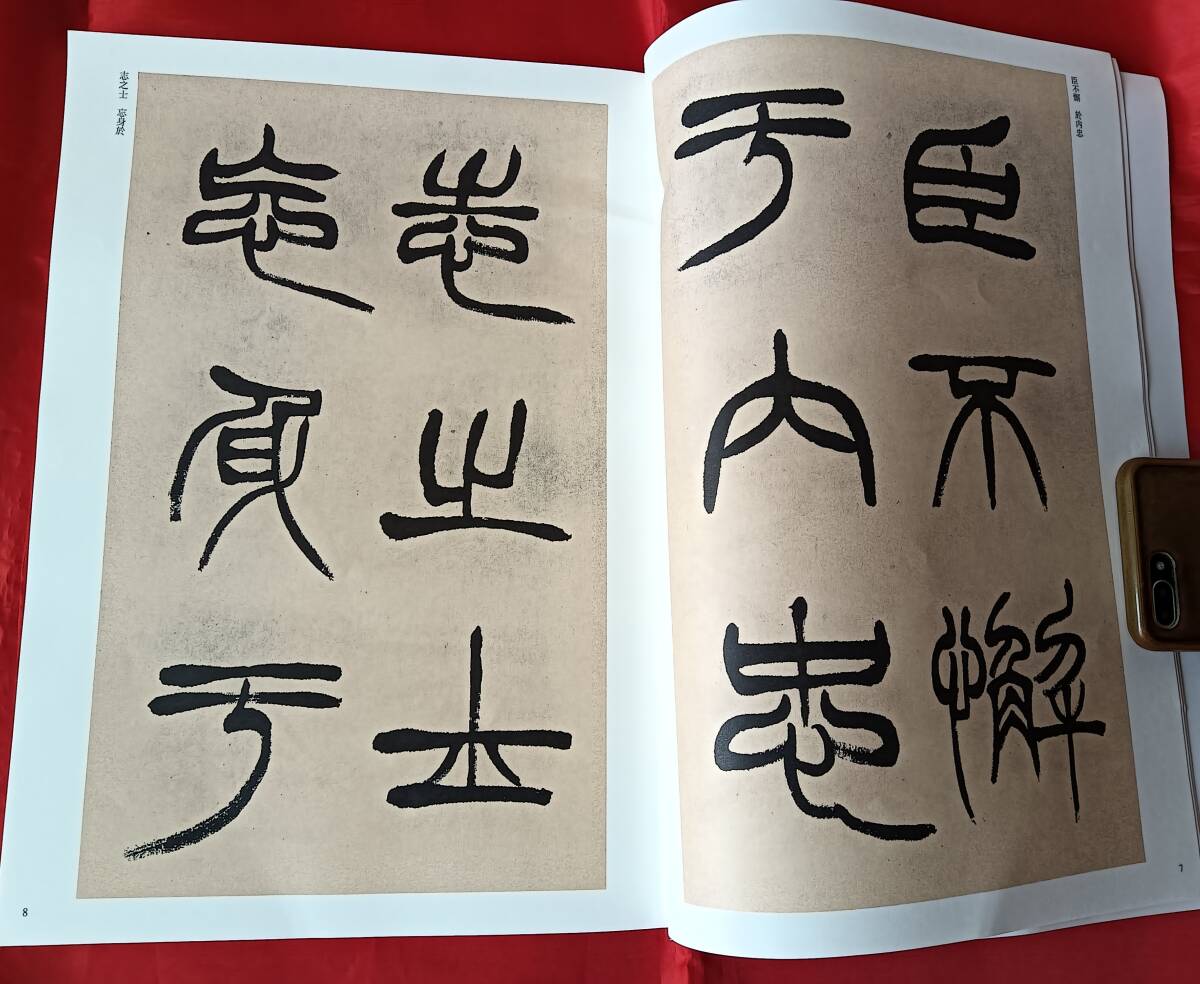 臣不懈 於内忠
臣不懈
于内忠
7
志之士 忘身於
志之士
忘身于
8